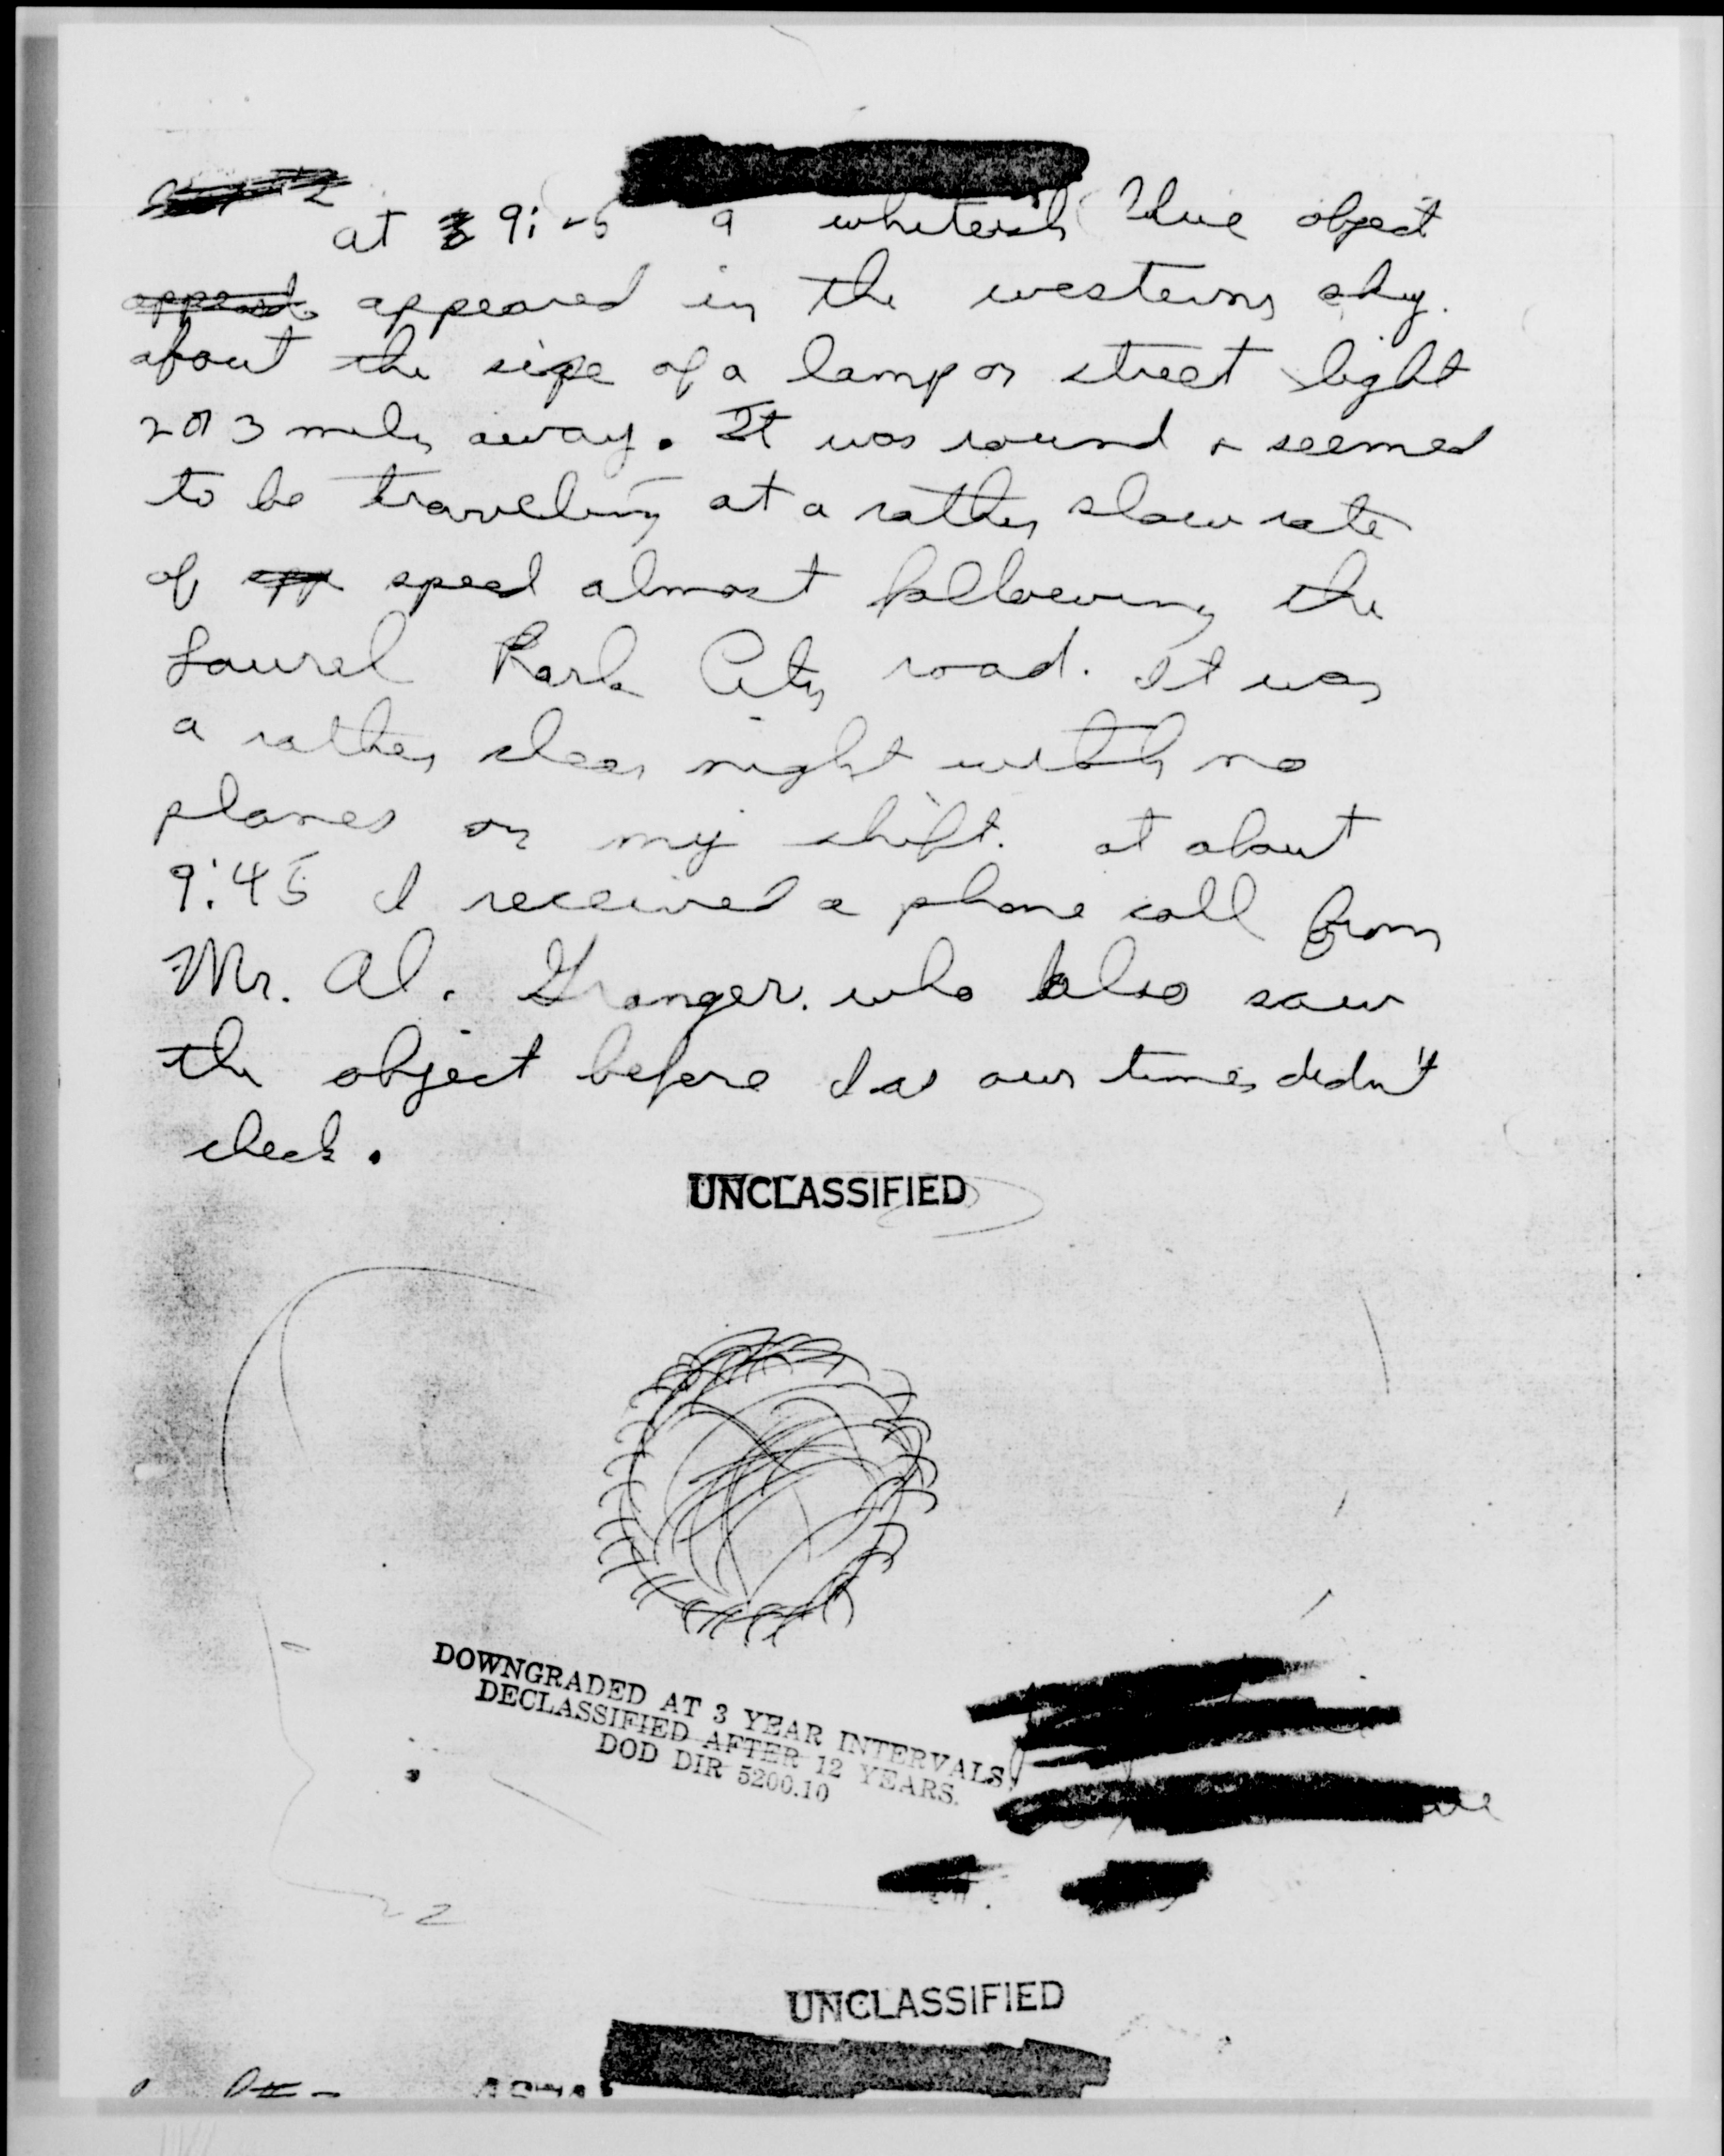 at 9: 5 a whiteish blue object
appeared in the western sky.
about the size of a lamp or street light
2 or 3 miles away. It was round & seemed
to be traveling at a rather slow rate
of speed almost following the
Laurel Park City road. It was
a rather clear night with no
planes on my shift. at about
9:45 I received a phone call from
Mr. Al. Granger. who also saw
the object before I as our times didn't
check.
UNCLASSIFIED
DOWNGRADED AT 3 YEAR INTERVALS
DECLASSIFIED AFTER 12 YEARS.
DOD DIR 5200.10
2
UNCLASSIFIED